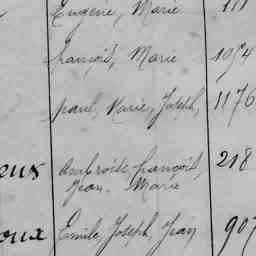 Eugène, Marie 111
françois, Marie 1054
paul, Marie, Joseph, 1176
eux Ambroise françois, 218
Jean-Marie
oux Emile Joseph Jean 907